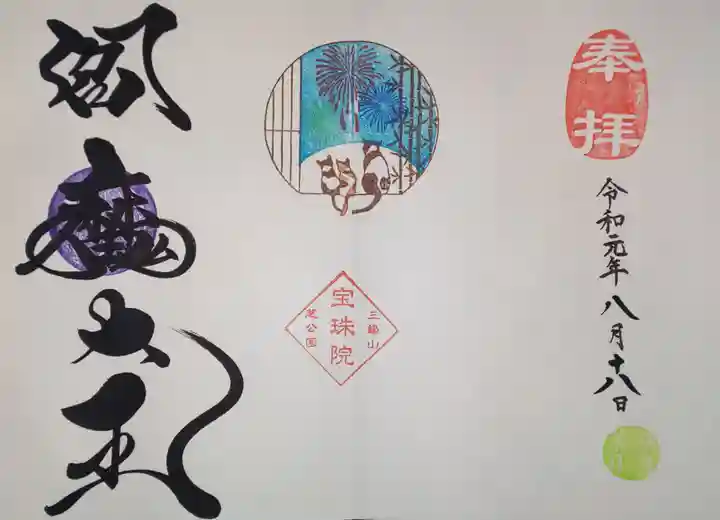 奉拝
令和元年八月十八日
三縁山
宝珠院
芝公園
閻魔大王